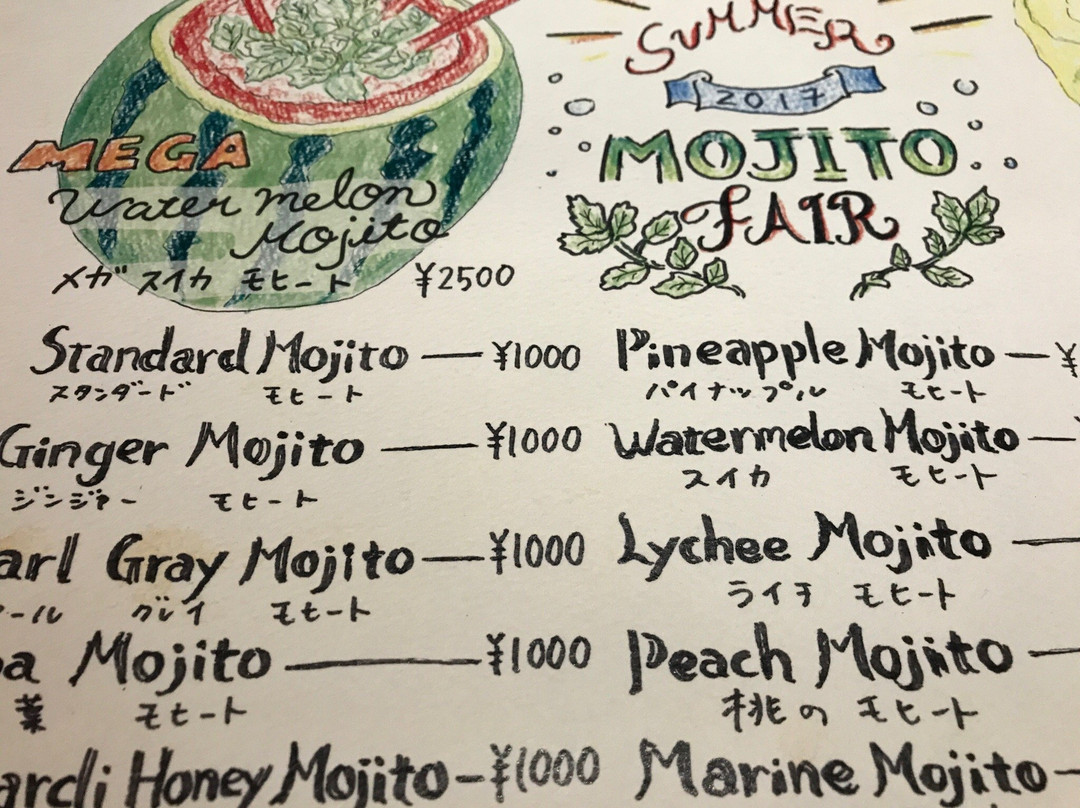 SUMMER
2017
MOJITO
FAIR
MEGA
Watermelon
Mojito
メガ スイカ モヒート ¥2500
Standard Mojito — ¥1000
スタンダード モヒート
Ginger Mojito — ¥1000
ジンジャー モヒート
arl Gray Mojito — ¥1000
ール グレイ モヒート
a Mojito — ¥1000
葉 モヒート
ardi Honey Mojito - ¥1000
Pineapple Mojito — ¥
パイナップル モヒート
Watermelon Mojito —
スイカ モヒート
Lychee Mojito —
ライチ モヒート
Peach Mojito —
桃の モヒート
Marine Mojito -